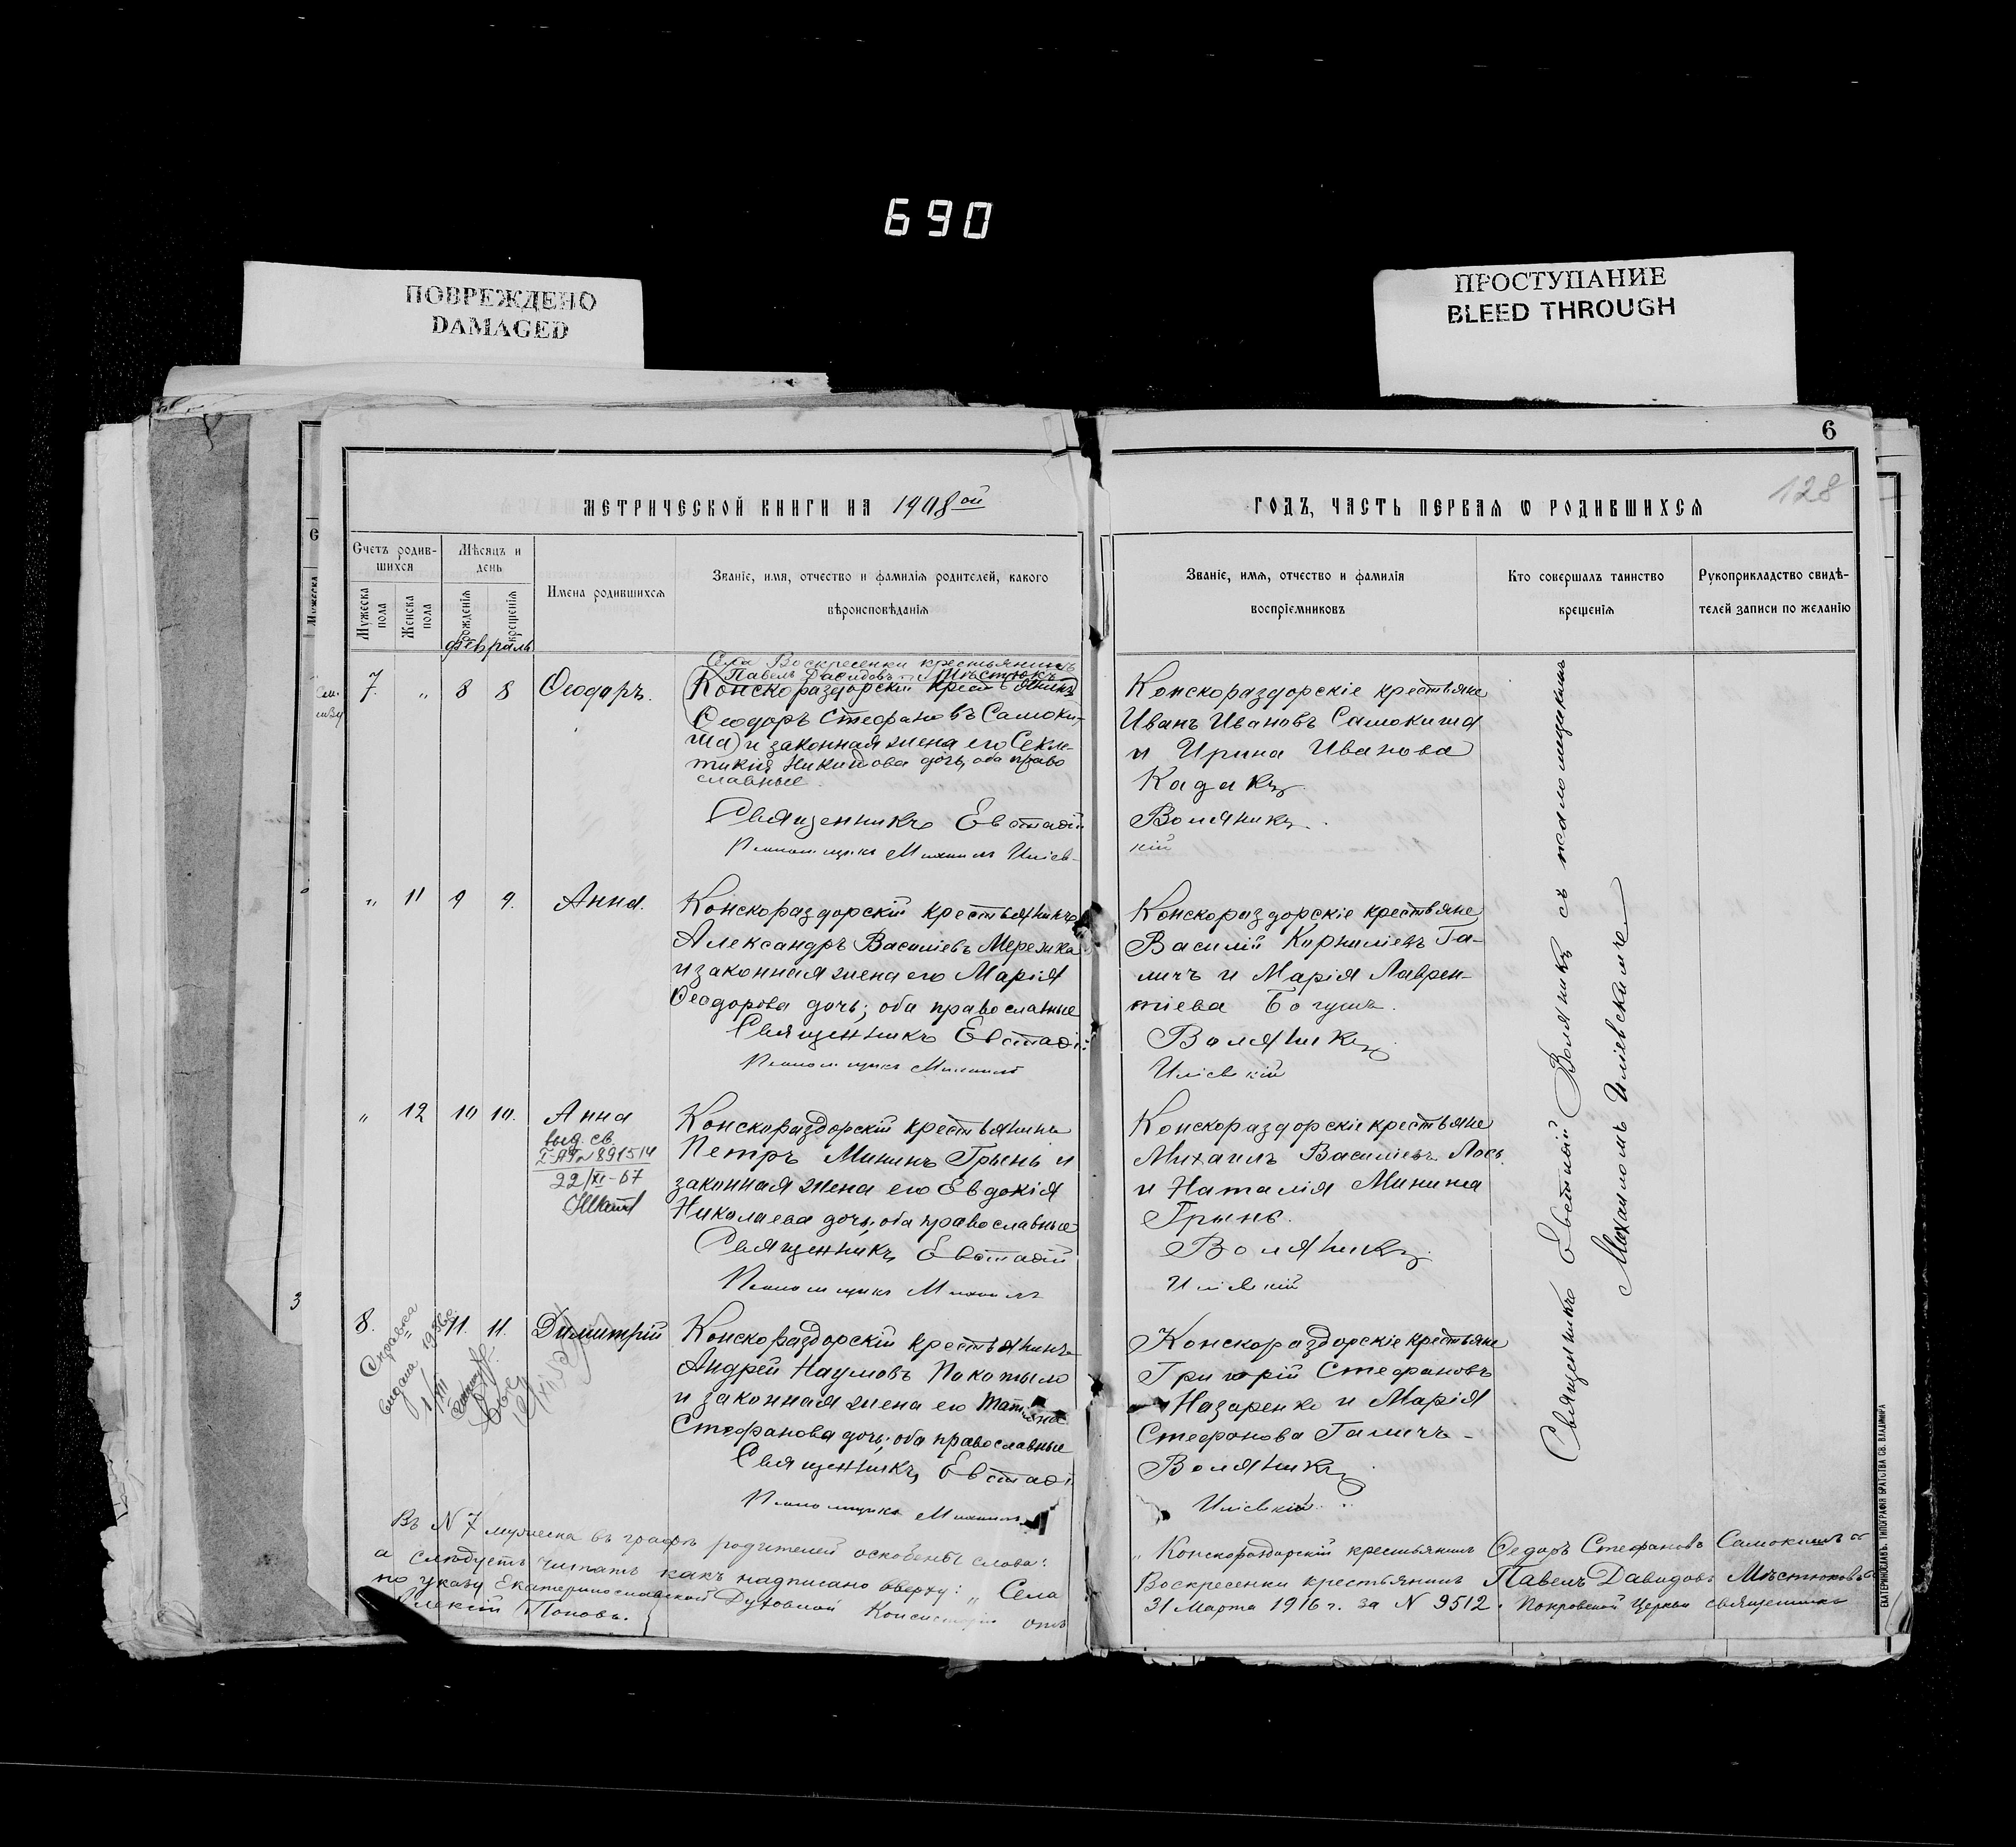 690
ПОВРЕЖДЕНО
DAMAGED
ПРОСТУПАНИЕ
BLEED THROUGH
6
128
МЕТРИЧЕСКОЙ КНИГИ НА 1908ой
ГОДЪ, ЧАСТЬ ПЕРВАЯ Ѡ РОДИВШИХСЯ
Счетъ родив-
шихся
Мужеска пола
Женска пола
Мѣсяцъ и
день
рожденія
крещенія
Имена родившихся
Званіе, имя, отчество и фамилія родителей, какого
вѣроисповѣданія
Званіе, имя, отчество и фамилія
воспріемниковъ
Кто совершалъ таинство
крещенія
Рукоприкладство свидѣ-
телей записи по желанію
Февраль
7. " 8 8 Ѳеодоръ.
Села Воскресенки крестьянинъ
Павелъ Давидовъ Мѣстюкъ
(Конскораздорскій крестьянинъ
Ѳеодоръ Стефановъ Самоки-
ша) и законная жена его Секле-
тикія Никитова дочь, оба право
славные.
Священникъ Евстафій
Псаломщикъ Михаилъ Иліев-
Конскораздорскіе крестьяне
Иванъ Ивановъ Самокиша
и Ирина Иванова
Кадакъ.
Воляникъ.
кій
" 11 9 9. Анна.
Конскораздорскій крестьянинъ
Александръ Василіевъ Мережка
и законная жена его Марія
Ѳеодорова дочь; оба православные
Священникъ Евстафій
Псаломщикъ Михаилъ
Конскораздорскіе крестьяне
Василій Корниліевъ Га-
личъ и Марія Лаврен-
тіева Богушъ.
Воляникъ
Иліевскій
" 12 10 10. Анна
выд. св.
891514
22/XI-67
Конскораздорскій крестьянинъ
Петръ Мининъ Грынь и
законная жена его Евдокія
Николаева дочь; оба православные
Священникъ Евстафій
Псаломщикъ Михаилъ
Конскораздорскіе крестьяне
Михаилъ Василіевъ Лось
и Наталія Минина
Грынь.
Воляникъ
Иліевскій
8. " 11. 11. Димитрій
Справка
выдана 1956
Конскораздорскій крестьянинъ
Андрей Наумовъ Покотыло
и законная жена его Татіана
Стефанова дочь; оба православные
Священникъ Евстафій
Псаломщикъ Михаилъ
Конскораздорскіе крестьяне
Григорій Стефановъ
Назаренко и Марія
Стефанова Галичъ
Воляникъ
Иліевскій
Священникъ Евстафій Воляникъ съ псаломщикомъ
Михаиломъ Иліевскимъ
Въ N 7 мужеска въ графѣ родителей оскобены слова: „Конскораздорскій крестьянинъ Ѳедоръ Стефановъ Самокиша"
а слѣдуетъ читать какъ надписано вверху: „Села Воскресенки крестьянинъ Павелъ Давидовъ Мѣстюковъ"
по указу Екатеринославской Духовной Консисторіи отъ 31 Марта 1916 г. за N 9512. Покровской Церкви священникъ
Алексій Поповъ.
ЕКАТЕРИНОСЛАВЪ. ТИПОГРАФІЯ БРАТСТВА СВ. ВЛАДИМІРА